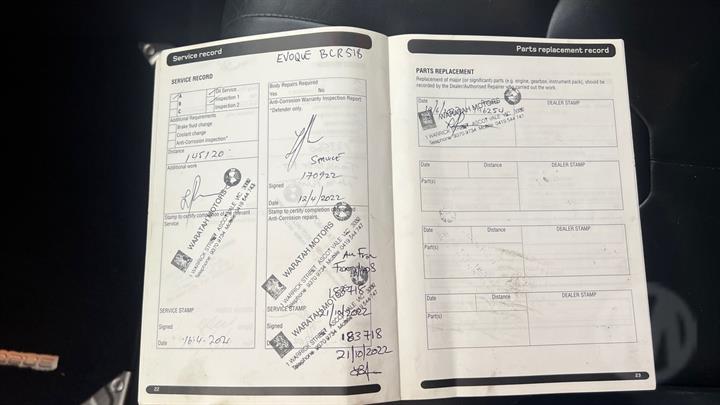 Service record
EVOQUE BCR518
SERVICE RECORD
A
B
C
Oil Service
Inspection 1
Inspection 2
Additional Requirements
Brake fluid change
Coolant change
Anti-Corrosion Inspection*
Distance
145120
Additional work
Stamp to certify completion of
Service
WARATAH MOTORS
1 WARRICK STREET ASCOT VALE VIC 3032
Telephone 9370 9734 Mobile 0419 544 743
SERVICE STAMP
Signed
Date
16-4-2021
22
Body Repairs Required
Yes
No
Anti-Corrosion Warranty Inspection Report
*Defender only.
SERVICE
170922
Signed
Date
12/4/2022
Stamp to certify completion of
Anti-Corrosion repairs.
WARATAH MOTORS
1 WARRICK STREET ASCOT VALE VIC 3032
Telephone 9370 9734 Mobile 0419 544 743
183718
21/10/2022
SERVICE STAMP
WARATAH MOTORS
1 WARRICK STREET ASCOT VALE VIC 3032
Telephone 9370 9734 Mobile 0419 544 743
183718
21/10/2022
Parts replacement record
PARTS REPLACEMENT
Replacement of major (or significant) parts (e.g. engine, gearbox, instrument pack), should be
recorded by the Dealer/Authorised Repairer who carried out the work.
Date
DEALER STAMP
WARATAH MOTORS
1 WARRICK STREET ASCOT VALE VIC 3032
Telephone 9370 9734 Mobile 0419 544 743
Date
Distance
DEALER STAMP
Part(s)
Date
Distance
DEALER STAMP
Part(s)
Date
Distance
DEALER STAMP
Part(s)
23